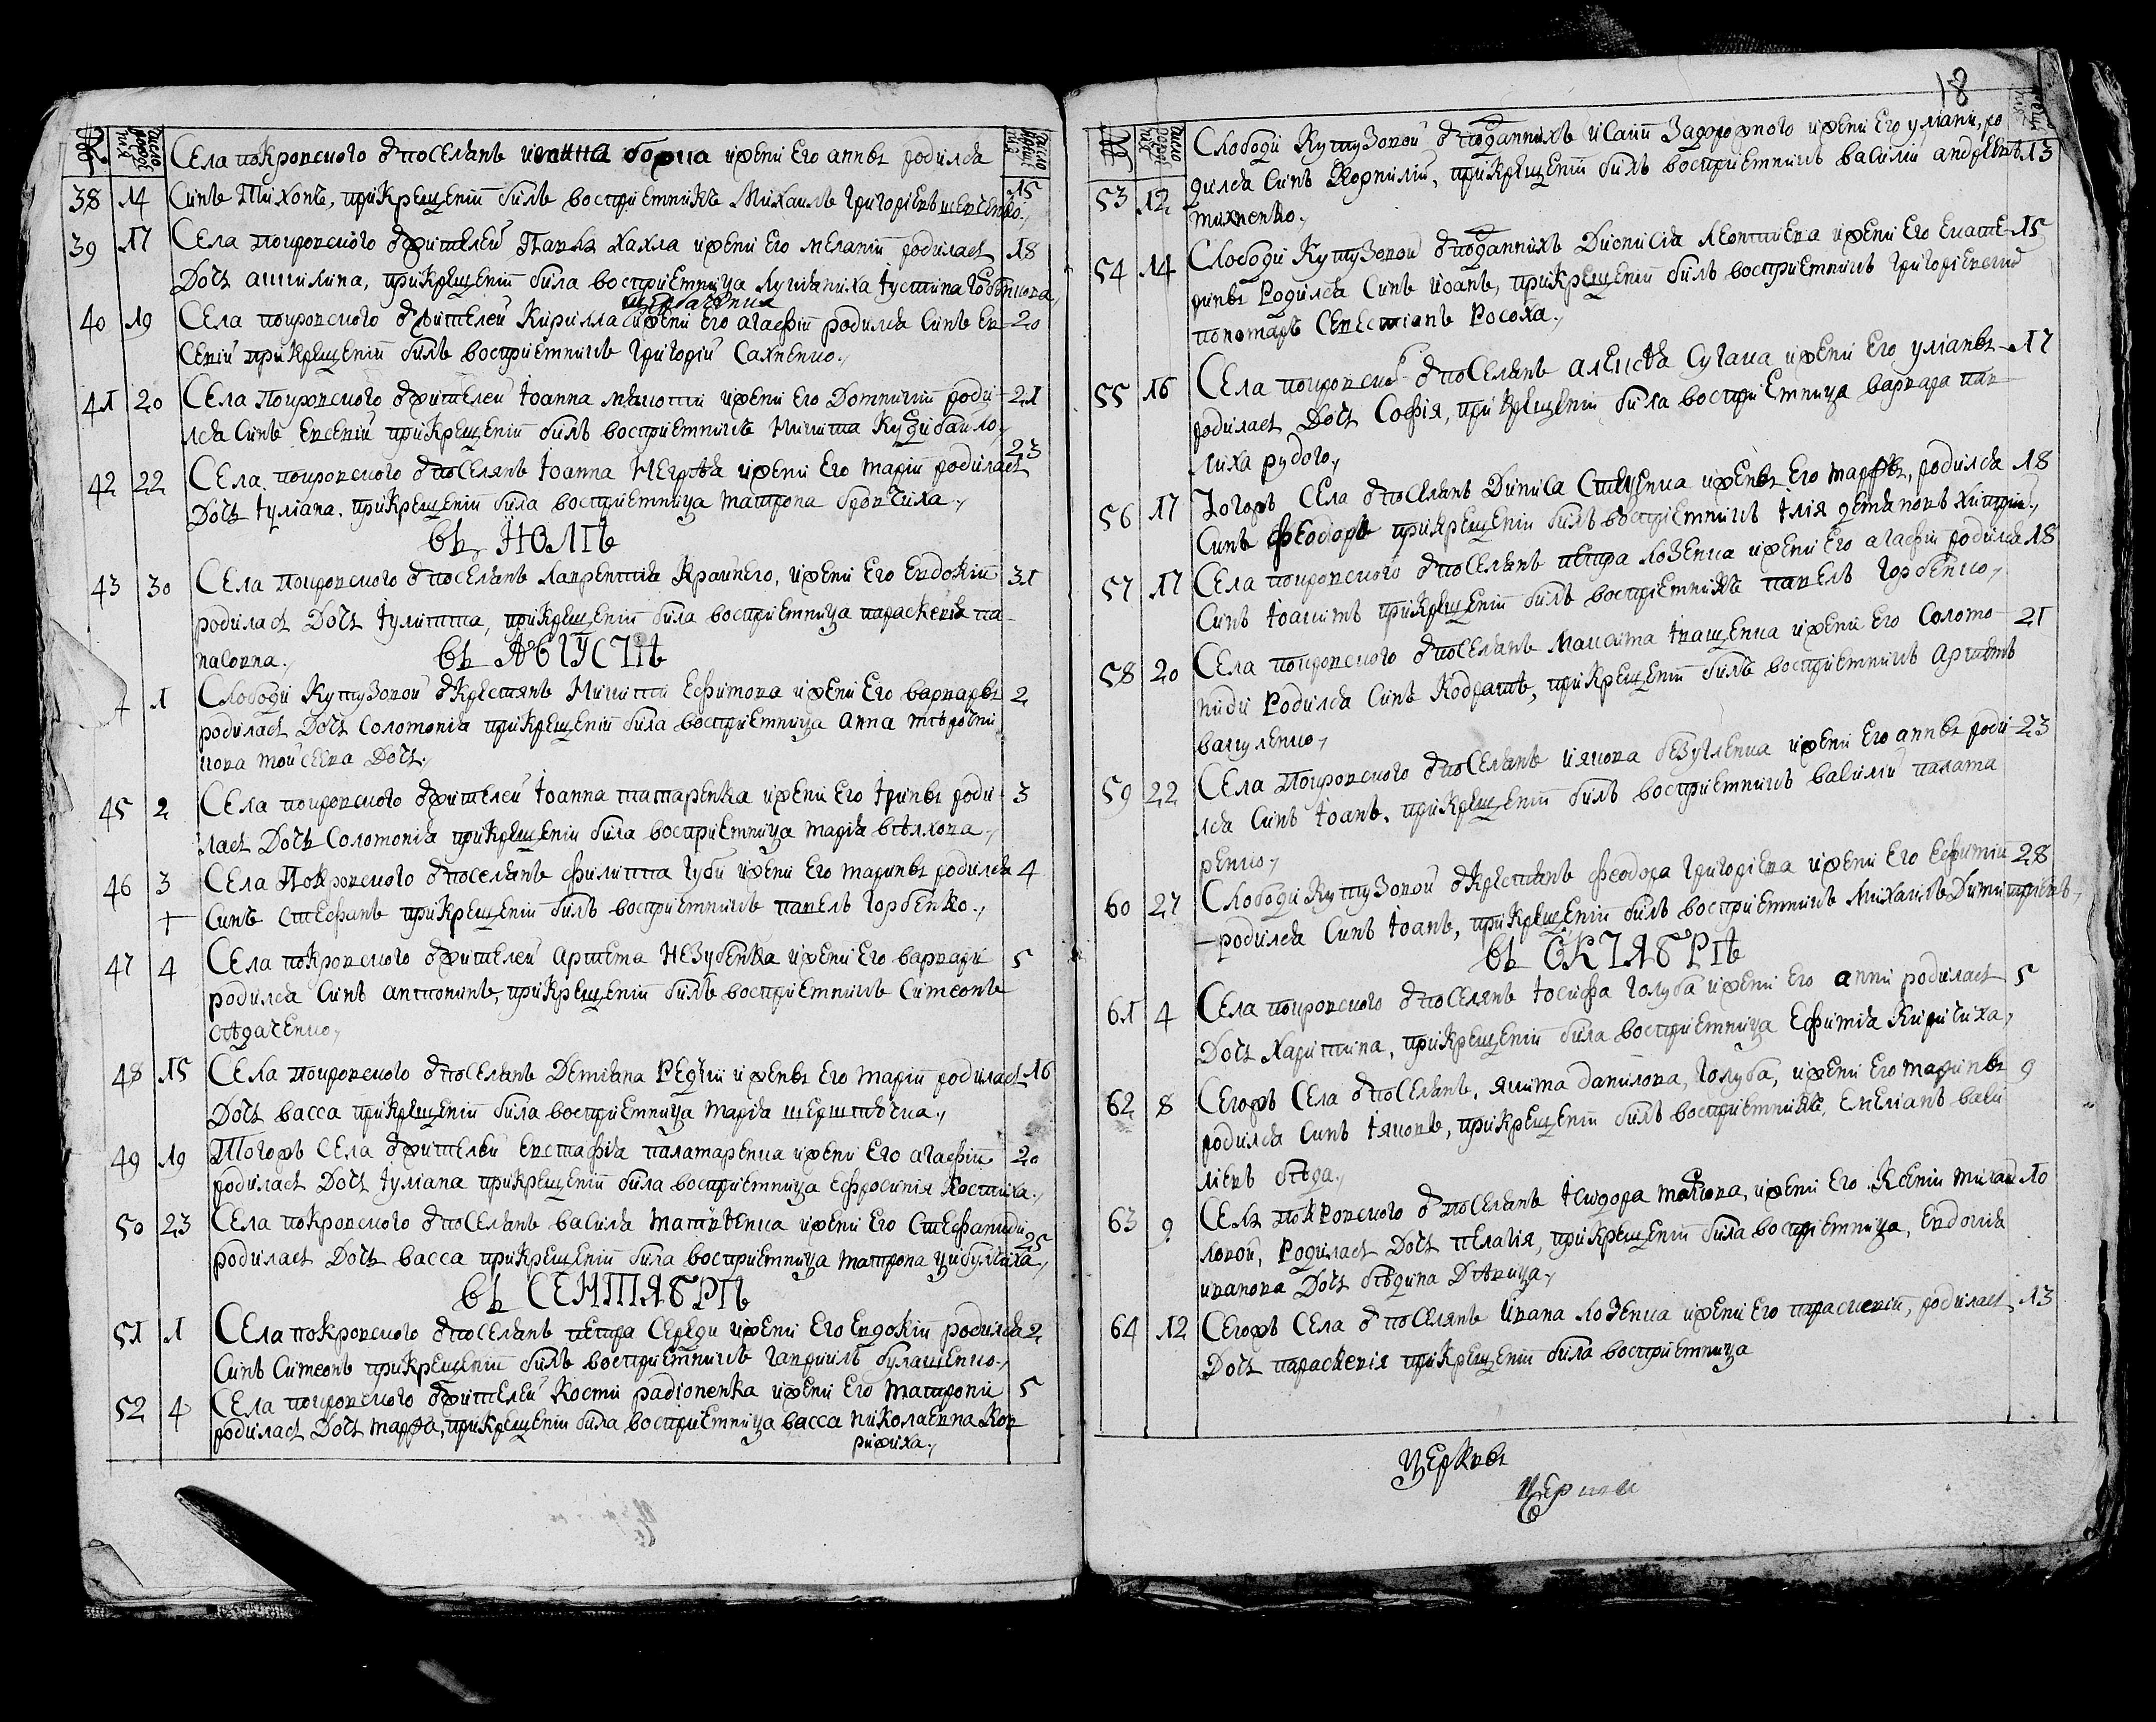 Села покровского ѿ поселянъ никита борца и жени его аннѣ родился
38 14 Синъ Тихонъ, при крещеніи билъ восприемникъ Михаилъ Григориевъ шевченко 15
39 17 Села покровского ѿ жителей Павла хахла и жени его меланіи родиласъ 18
Дочъ акилина, при крещеніи била восприемница Лукияниха Іустина
40 19 Села покровского ѿ жителей Кирилла и жени его агафіи родился Синъ Ев- 20
сеній при крещеніи билъ восприемникъ Григорій Сахненко
41 20 Села покровского ѿ жителей Іоанна и жени его Домникіи роди- 21
лся Синъ Евсеній при крещеніи билъ восприемникъ Никита Кузубайло
42 22 Села покровского ѿ поселянъ Іоанна Негрѣя и жени его маріи родилася 23
Дочъ Іуліана, при крещеніи била восприемница матрона
въ ІЮЛѢ
43 30 Села покровского ѿ поселянъ Лаврентія Крайнего, и жени его Евдокіи 31
родиласъ Дочъ Іулитта, при крещеніи била восприемница параскевія па-
насовна
въ АВГУСТѢ
4 1 Слободи Кутузовой ѿ крестянъ Микити Ефимова и жени его варварѣ 2
родиласъ Дочъ Соломонія при крещеніи била восприемница анна
кова мойсеева Дочъ
45 2 Села покровского ѿ жителей Іоанна татаренка и жени его Іринѣ роди- 3
ласъ Дочъ Соломонія при крещеніи била восприемница марія бѣлкова
46 3 Села Покровского ѿ поселянъ филиппа Губи и жени его маринѣ родился 4
+ Синъ Стефанъ при крещеніи билъ восприемникъ павелъ Горбенко
47 4 Села покровского ѿ жителей артема Незубенка и жени его варвари 5
родился Синъ антонинъ, при крещеніи билъ восприемникъ Симеонъ
сѣдаченко
48 15 Села покровского ѿ поселянъ Деміана Редки и женѣ его маріи родиласъ 16
Дочъ васса при крещеніи била восприемница марія
49 19 Тогожъ Села ѿ жителей Евстафія паламаренка и жени его агафіи 20
родиласъ Дочъ Іуліана при крещеніи била восприемница Ефросинія Костиха
50 23 Села покровского ѿ поселянъ василя матвѣенка и жени его Стефаниди 25
родиласъ Дочъ васса при крещеніи била восприемница матрона цибулиха
въ СЕНТЯБРѢ
51 1 Села покровского ѿ поселянъ петра Середи и жени его Евдокіи родился 2
Синъ Симеонъ при крещеніи билъ восприемникъ Гавриилъ булашенко
52 4 Села покровского ѿ жителей Кости радіоненка и жени его матрони 5
родиласъ Дочъ марфа, при крещеніи била восприемница васса николаевна Ков
рижиха
18
Слободи Кутузовой ѿ подданнихъ Исаіи Задорожного и жени его уляни, ро
53 12 дился Синъ Корнилій, при крещеніи билъ восприемникъ василій андреевъ 13
михненко
54 14 Слободи Кутузовой ѿ подданнихъ Дионисія Леонтиева и жени его Екате- 15
ринѣ Родился Синъ Иоанъ, при крещеніи билъ восприемникъ Григориевский
пономаръ Севестіанъ Росоха
55 16 Села покровского ѿ поселянъ алексѣя Сугака и жени его уліанѣ 17
родиласъ Дочъ Софія, при крещеніи била восприемница варвара пав
лиха рудого
56 17 Тогожъ Села ѿ поселянъ Диниса и женѣ его марфѣ, родился 18
Синъ феодоръ при крещеніи билъ восприемникъ Ілія
57 17 Села покровского ѿ поселянъ петра лозенка и жени его агафіи родился 18
Синъ Іоакимъ при крещеніи билъ восприемникъ павелъ Горбенко
58 20 Села покровского ѿ поселянъ максима Іващенка и жени его Соломо- 21
ниди Родился Синъ Кодратъ, при крещеніи билъ восприемникъ артемъ
вакуленко
59 22 Села покровского ѿ поселянъ иякова безугленка и жени его аннѣ роди- 23
лся Синъ Іоанъ, при крещеніи билъ восприемникъ василій палама
ренко
60 27 Слободи Кутузовой ѿ крестянъ феодора Григориева и жени его Ефиміи 28
родился Синъ Іоанъ, при крещеніи билъ восприемникъ Михаилъ Димитриевъ
въ ОКТЯБРѢ
61 4 Села покровского ѿ поселянъ Іосифа Голуба и жени его анни родиласъ 5
Дочъ Харитина, при крещеніи била восприемница Ефимія Киричиха
62 8 Сегожъ Села ѿ поселянъ, якима данилова, Голуба, и жени его маринѣ 9
родился Синъ Іяковъ, при крещеніи билъ восприемникъ, Емеліанъ васи
лиевъ бѣда
63 9 Села покровского ѿ поселянъ Ісидора и жени его Ксеніи михай 10
ловой, Родиласъ Дочъ пелагія, при крещеніи била восприемница, Евдокія
иванова Дочъ бѣдина Дѣвица
64 12 Сегожъ Села ѿ поселянъ Ивана лозенка и жени его параскевіи, родиласъ 13
Дочъ параскевія при крещеніи била восприемница
Церквѣ